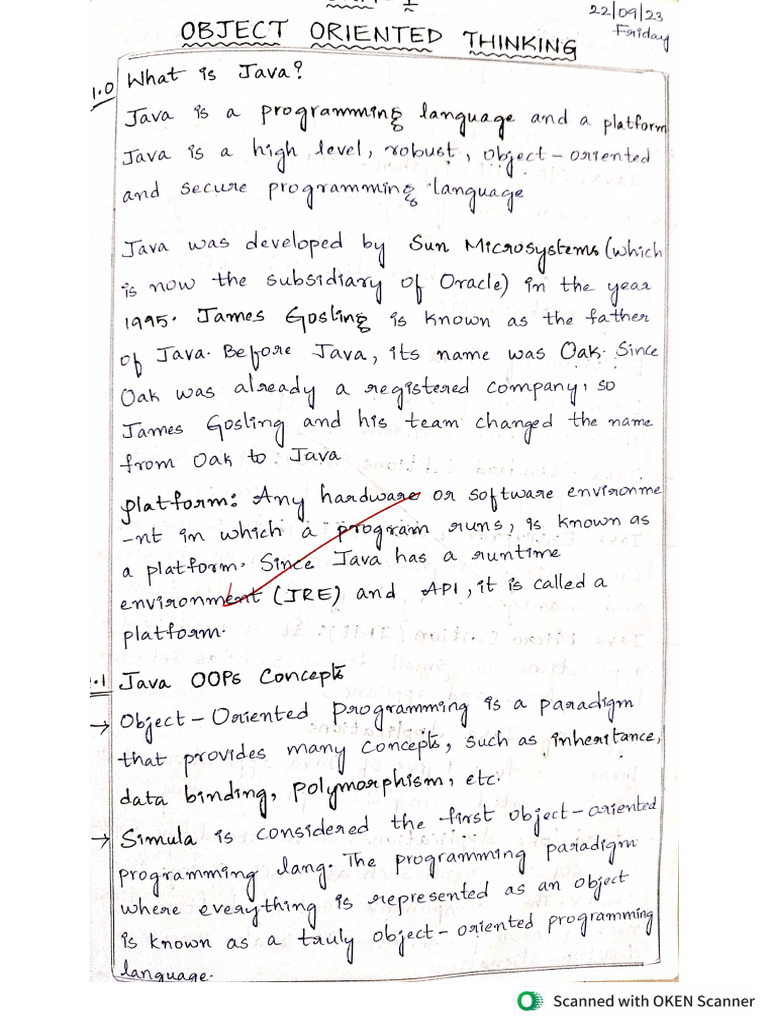 22/09/23
Friday
OBJECT ORIENTED THINKING
1.0 What is Java?
Java is a programming language and a platform
Java is a high level, robust, object-oriented
and secure programming language
Java was developed by Sun Microsystems (which
is now the subsidiary of Oracle) in the year
1995. James Gosling is known as the father
of Java. Before Java, its name was Oak. Since
Oak was already a registered company, so
James Gosling and his team changed the name
from Oak to Java
platform: Any hardware or software environme
-nt in which a program runs, is known as
a platform. Since Java has a runtime
environment (JRE) and API, it is called a
platform.
.1 Java OOPs Concepts
→ Object-Oriented Programming is a paradigm
that provides many concepts, such as inheritance,
data binding, polymorphism, etc.
→ Simula is considered the first object-oriented
programming lang. The programming paradigm
where everything is represented as an object
is known as a truly object-oriented programming
language.
Scanned with OKEN Scanner